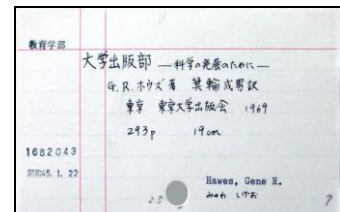 教育学部
大学出版部 ―科学の発展のために―
G. R. ホウズ著 箕輪成男訳
東京 東京大学出版会 1969
293p 19cm
1682043
昭和45. 1. 22
Hawes, Gene R.
みのわ しげお
25
7